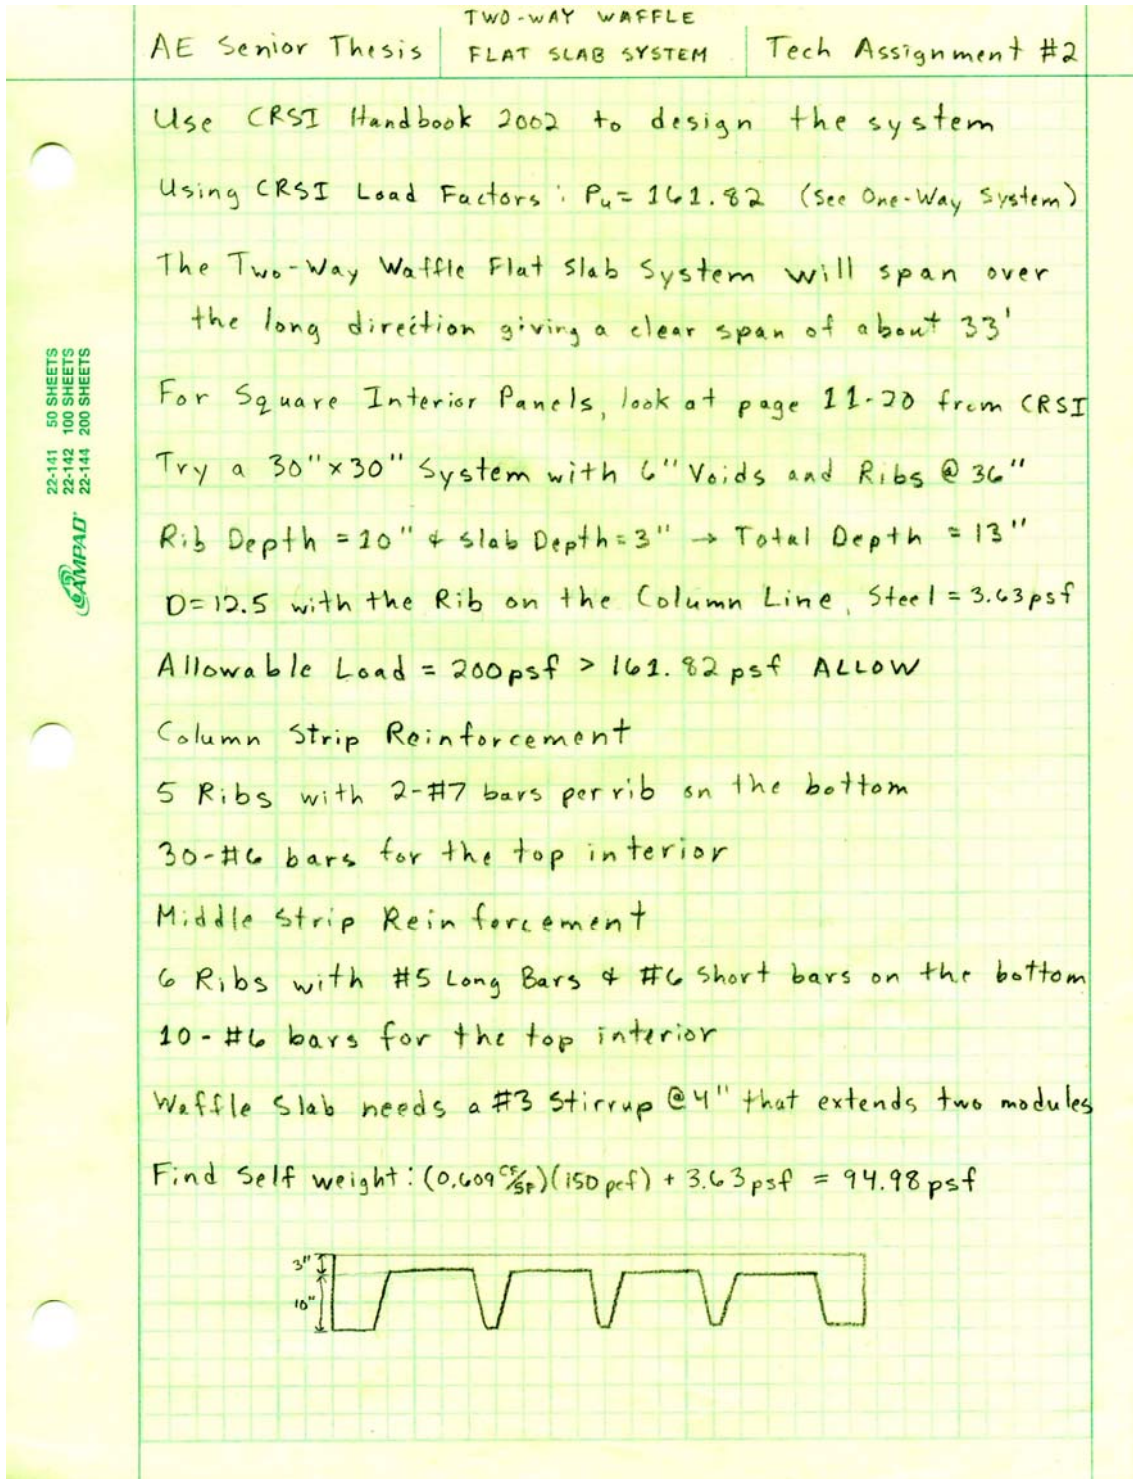 TWO-WAY WAFFLE
AE Senior Thesis FLAT SLAB SYSTEM Tech Assignment #2
Use CRSI Handbook 2002 to design the system
Using CRSI Load Factors: Pu = 161.82 (See One-Way System)
The Two-Way Waffle Flat Slab System will span over
the long direction giving a clear span of about 33'
For Square Interior Panels, look at page 11-20 from CRSI
Try a 30"x30" System with 6" Voids and Ribs @ 36"
Rib Depth = 10" & Slab Depth = 3" → Total Depth = 13"
D=12.5 with the Rib on the Column Line, Steel = 3.63psf
Allowable Load = 200psf > 161.82 psf ALLOW
Column Strip Reinforcement
5 Ribs with 2-#7 bars per rib on the bottom
30-#6 bars for the top interior
Middle Strip Reinforcement
6 Ribs with #5 Long Bars & #6 Short bars on the bottom
10-#6 bars for the top interior
Waffle Slab needs a #3 Stirrup @4" that extends two modules
Find Self weight: (0.609 CF/SF)(150 pcf) + 3.63psf = 94.98 psf
3"
10"
22-141 50 SHEETS
22-142 100 SHEETS
22-144 200 SHEETS
AMPAD